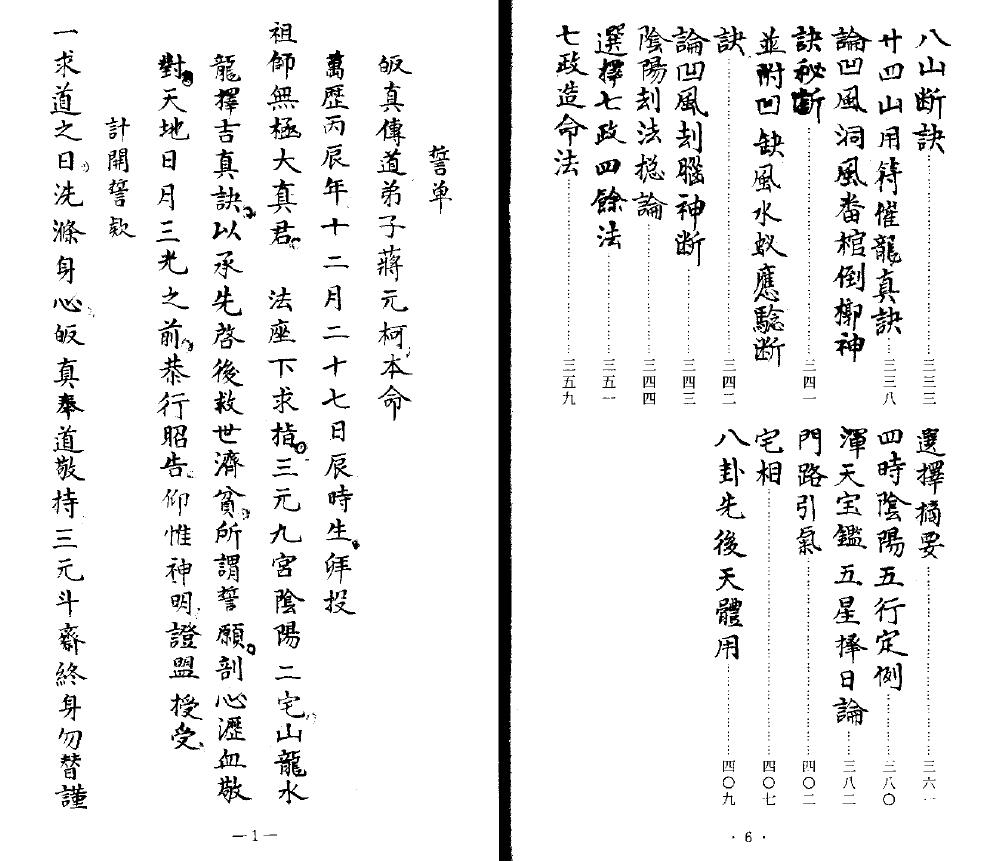 八山断訣……三三三
廿四山用符催龍真訣……三三八
論凹風洞風畨棺倒槨神
訣秘断……三四一
並附凹缺風水蚁應驗断
訣……三四二
論凹風刦腦神断……三四三
陰陽刦法搃論……三四四
選擇七政四餘法……三五一
七政造命法……三五九
選擇摘要……三六一
四時陰陽五行定例……三八〇
渾天宝鑑五星擇日論……三八二
門路引氣……四〇二
宅相……四〇七
八卦先後天體用……四〇九
·6·
誓单
皈真傳道弟子蔣元柯本命
萬歷丙辰年十二月二十七日辰時生。拜投
祖師無極大真君。　法座下求指。三元九宮陰陽二宅。山龍水
龍擇吉真訣。以承先啓後救世濟貧。所謂誓願。剖心瀝血敬
對。天地日月三光之前。恭行昭告。仰惟神明。證盟授受。
計開誓欵
一求道之日。洗滌身心。皈真奉道敬持三元斗齋終身勿替謹
—1—